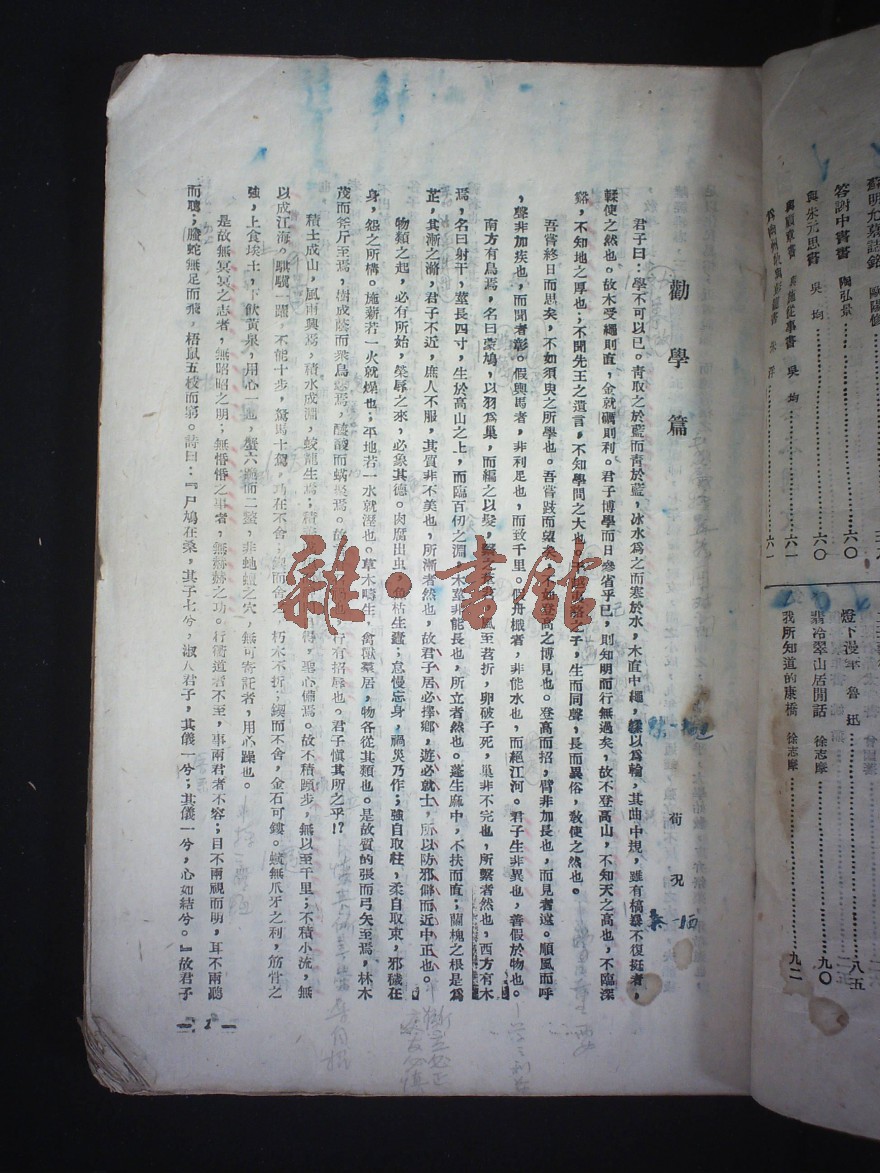 勸學篇
荀況
君子曰：學不可以已。青取之於藍而青於藍，冰水爲之而寒於水，木直中繩，輮以爲輪，其曲中規，雖有槁暴不復挺者，
輮使之然也。故木受繩則直，金就礪則利。君子博學而日參省乎已，則知明而行無過矣，故不登高山，不知天之高也，不臨深
谿，不知地之厚也；不聞先王之遺言，不知學問之大也。之子，生而同聲，長而異俗，敎使之然也。
吾嘗終日而思矣，不如須臾之所學也。吾嘗跂而望矣，不如登高之博見也。登高而招，臂非加長也，而見者遠。順風而呼
，聲非加疾也，而聞者彰。假輿馬者，非利足也，而致千里。假舟檝者，非能水也，而絕江河。君子生非異也，善假於物也。
南方有鳥焉，名曰蒙鳩，以羽爲巢，而編之以髮，繫之葦苕，風至苕折，卵破子死，巢非不完也，所繫者然也，西方有木
焉，名曰射干，莖長四寸，生於高山之上，而臨百仞之淵，木莖非能長也，所立者然也。蓬生麻中，不扶而直；蘭槐之根是爲
芷，其漸之滫，君子不近，庶人不服，其質非不美也，所漸者然也，故君子居必擇鄉，遊必就士，所以防邪僻而近中正也。
物類之起，必有所始，榮辱之來，必象其德。肉腐出虫，魚枯生蠹；怠慢忘身，禍災乃作；強自取柱，柔自取束，邪穢在
身，怨之所構。施薪若一火就燥也；平地若一水就溼也。草木疇生，禽獸羣居，物各從其類也。是故質的張而弓矢至焉，林木
茂而斧斤至焉，樹成蔭而衆鳥息焉，醯酸而蜹聚焉。故也，行有招辱也。君子愼其所之乎！？
積土成山，風雨興焉，積水成淵，蛟龍生焉；積得，聖心備焉。故不積蹞步，無以至千里；不積小流，無
以成江海。騏驥一躍，不能十步，駑馬十駕，功在不舍；鍥而舍之，朽木不折；鍥而不舍，金石可鏤。螾無爪牙之利，筋骨之
強，上食埃土，下飲黃泉，用心一也，蟹六跪而二螯，非虵蟺之穴，無可寄託者，用心躁也。
是故無冥冥之志者，無昭昭之明；無惛惛之事者，無赫赫之功。行衢道者不至，事兩君者不容；目不兩視而明，耳不兩聽
而聰；螣蛇無足而飛，梧鼠五技而窮。詩曰：『尸鳩在桑，其子七兮，淑人君子，其儀一兮；其儀一兮，心如結兮。』故君子
— 1 —
雜·書館
答謝中書書 陶弘景………六〇
與朱元思書 吳均………六〇
吳均………六一
六一
燈下漫筆 魯迅………八五
翡冷翠山居閒話 徐志摩………九〇
我所知道的康橋 徐志摩………九二